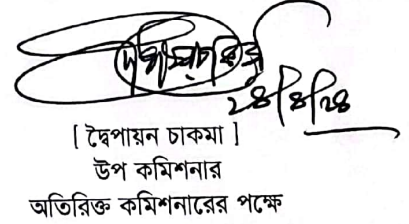 ২৪/৪/২৪
[ দ্বৈপায়ন চাকমা ]
উপ কমিশনার
অতিরিক্ত কমিশনারের পক্ষে